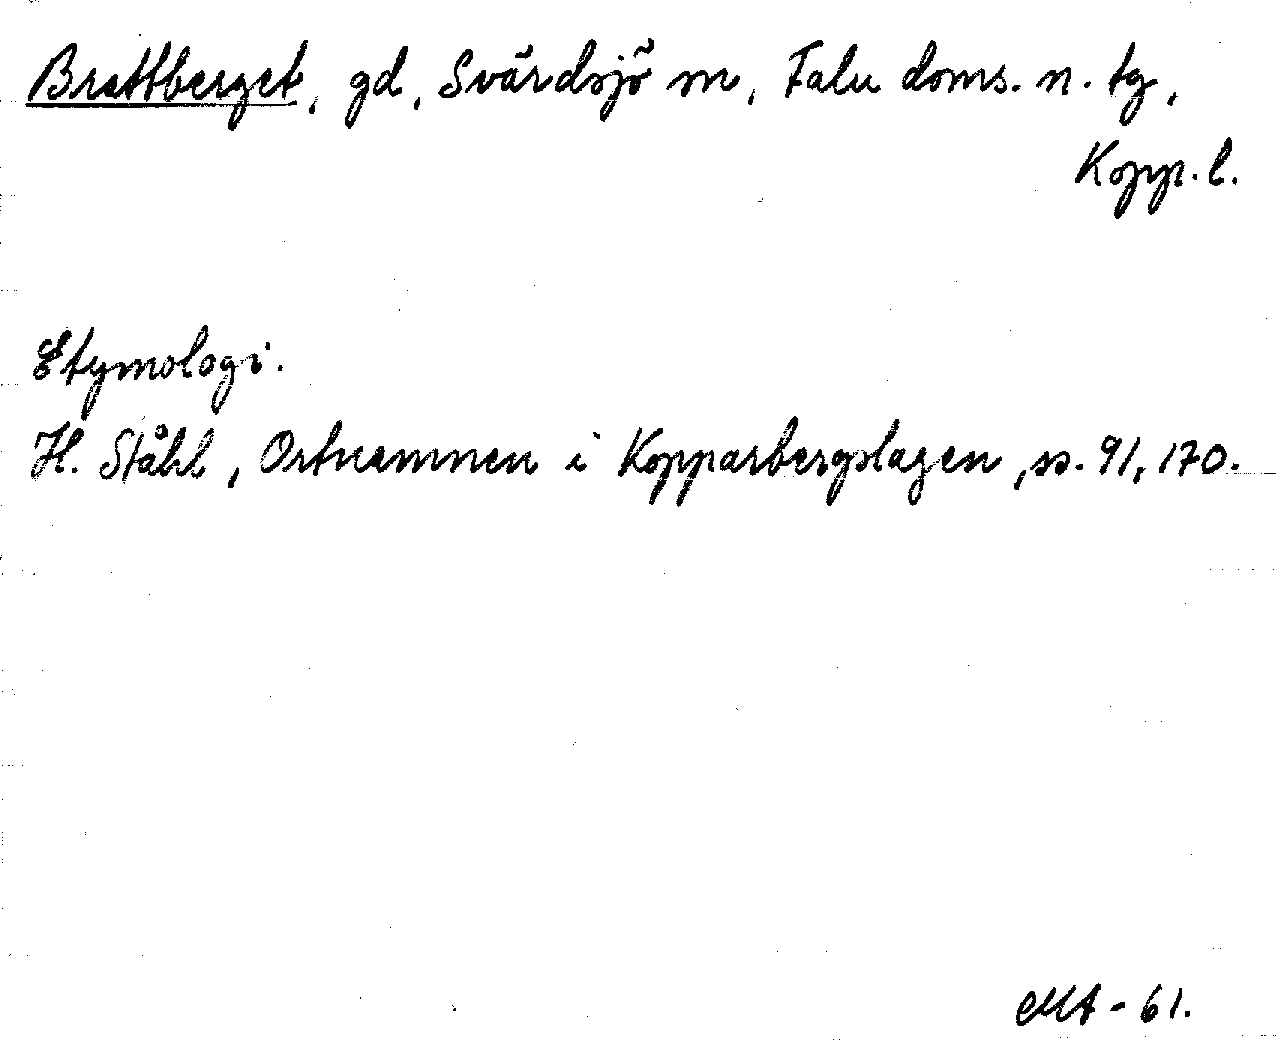 Brattberget, gd, Svärdsjö sn, Falu doms. n. tg,
Kopp. l.
Etymologi.
H. Ståhl, Ortnamnen i Kopparbergslagen, ss. 91, 170.
MA - 61.